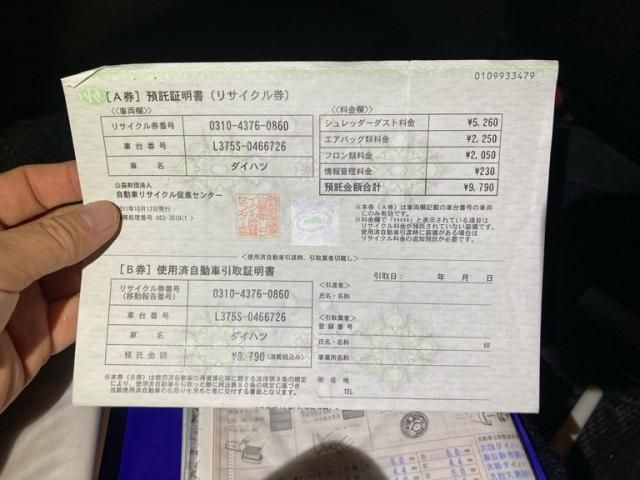 0109933479
[A券] 預託証明書 (リサイクル券)
<<車両欄>>
リサイクル券番号 0310-4376-0860
車台番号 L375S-0466726
車名 ダイハツ
公益財団法人
自動車リサイクル促進センター
2011年10月13日発行
<<料金欄>>
シュレッダーダスト料金 ¥5,260
エアバッグ類料金 ¥2,250
フロン類料金 ¥2,050
情報管理料金 ¥230
預託金額合計 ¥9,790
※本券(A券)は車両欄記載の車台番号の車両
にのみ有効です。
※料金欄で「*****」と表示されている項目は
リサイクル料金が預託されていない装備です。
使用済自動車引渡時に装備がある場合は
リサイクル料金の追加預託が必要です。
<使用済自動車引渡時、引取業者切離し>
[B券] 使用済自動車引取証明書
引取日: 年 月 日
リサイクル券番号
(移動報告番号) 0310-4376-0860
車台番号 L375S-0466726
車名 ダイハツ
預託金額 ¥9,790 (消費税込み)
<引渡者>
氏名・名称
<引取業者>
登録番号
氏名・名称 印
事業所名称
所在地
TEL
※本券(B券)は使用済自動車の再資源化等に関する法律第9条の規定
により、使用済自動車を引取った際に同法第80条の規定に基づき
当該使用済自動車の引取りを求めた者に交付する書面となります。